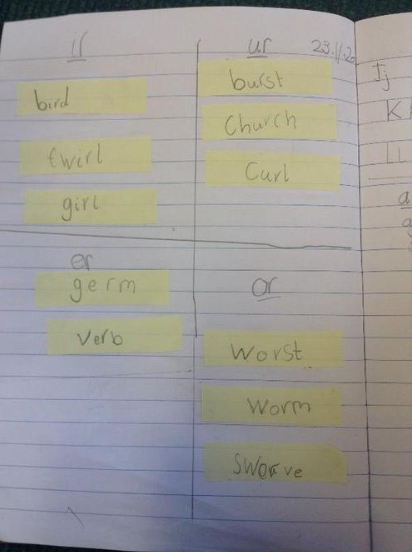 ir
bird
twirl
girl
ur
23.11.20
burst
Church
Curl
er
germ
verb
or
Worst
Worm
Sworve
Jj
LL
a